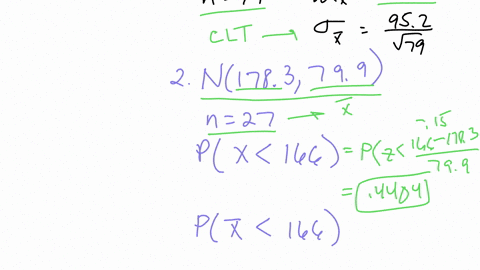 CLT → σx̄ = 95.2/√79
2. N(178.3, 79.9)
n = 27 → x̄
-.15
P(X < 166) = P(z < (166-178.3)/79.9)
= .4404
P(x̄ < 166)